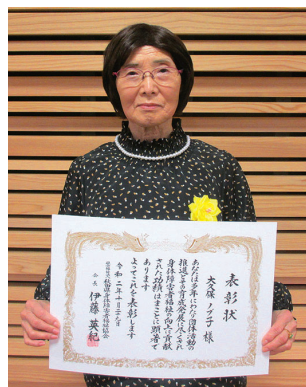 表彰状
大久保 ノブ子 様
あなたは多年にわたり団体活動の
推進とその育成発展に尽くされ
身体障害者福祉の向上に貢献
された功績はまことに顕著で
あります
よってこれを表彰します
令和二年十月二十九日
会長 伊藤 英紀